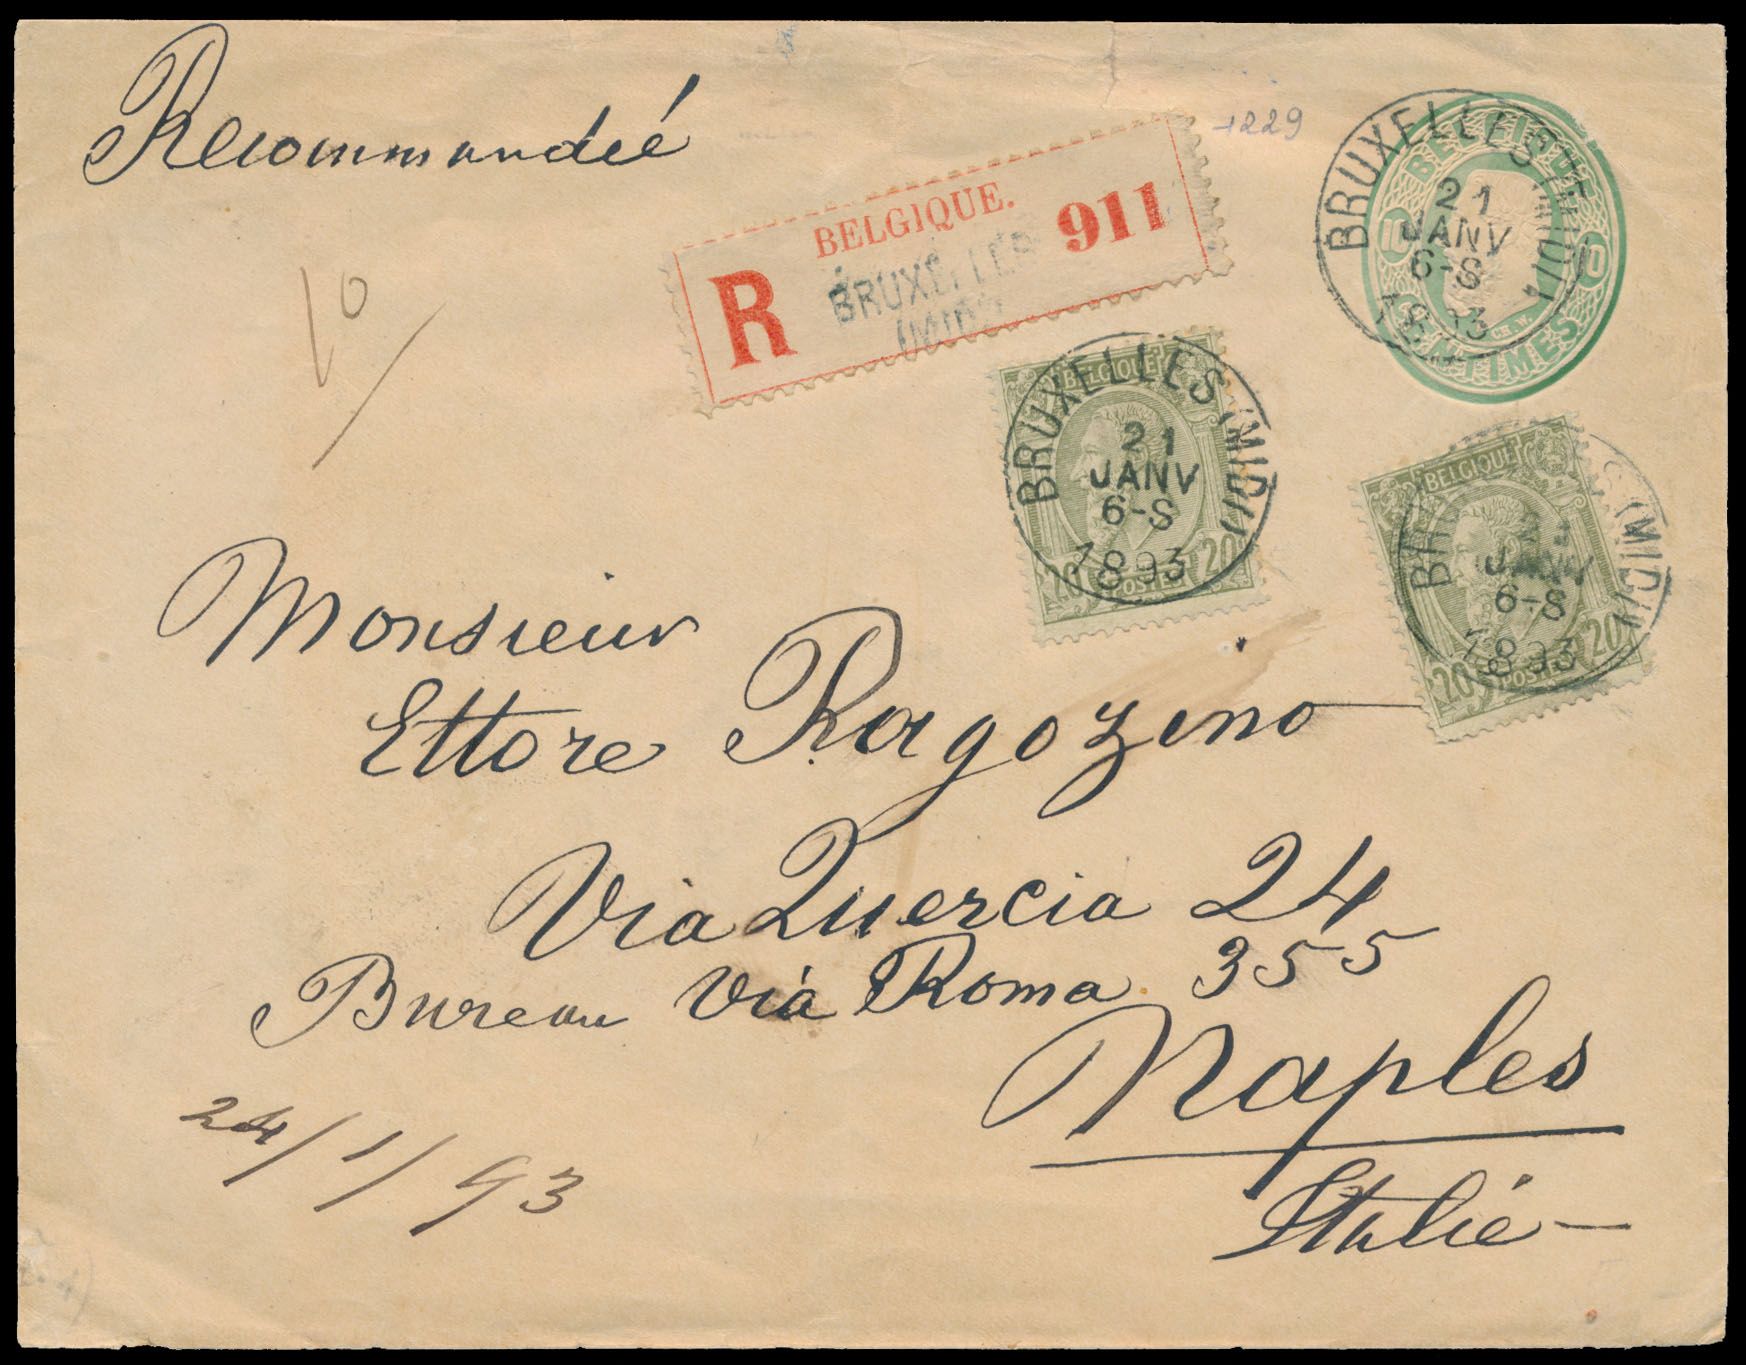 Recommandée
1229
BELGIQUE.
R
911
BRUXELLES
(MIDI)
BRUXELLES (MIDI)
21
JANV
6-S
1893
BELGIQUE
10
10
CENTIMES
CH.W.
10
BELGIQUE
BRUXELLES (MIDI)
21
JANV
6-S
1893
20 POSTES 20
BELGIQUE
BRUXELLES (MIDI)
21
JANV
6-S
1893
20 POSTES 20
Monsieur
Ettore Ragozino
Via Quercia 24
Bureau Via Roma 355
Naples
Italie
24/1/93